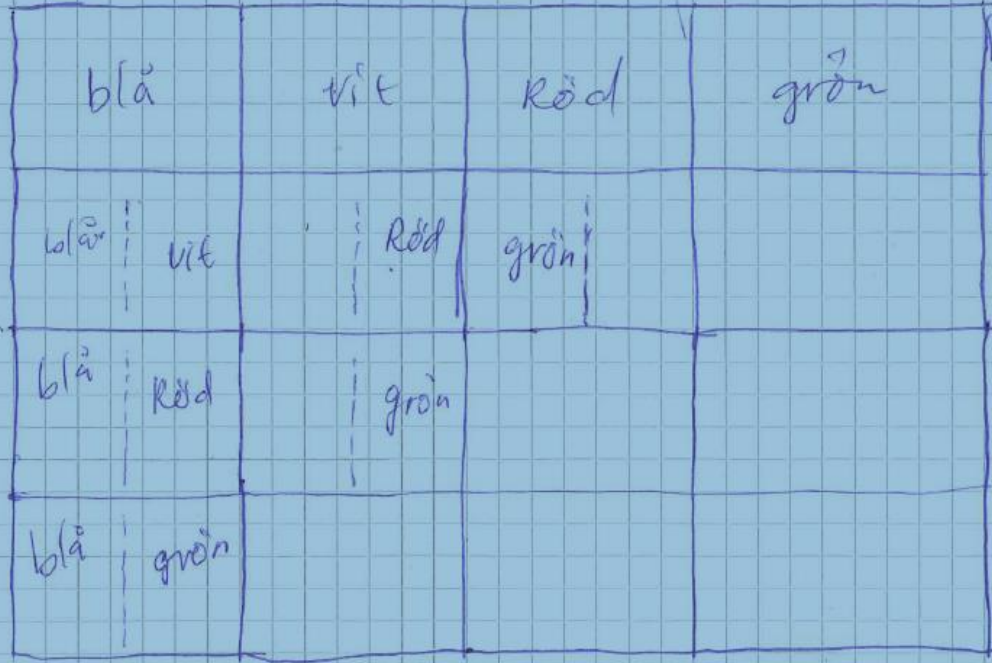 blå vit Röd grön
blå vit Röd grön
blå Röd grön
blå grön